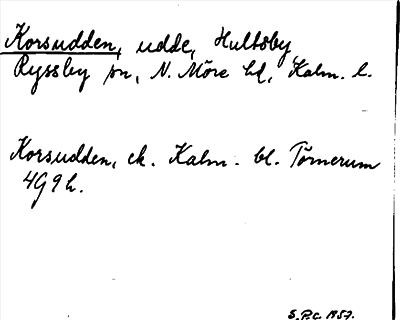 Korsudden, udde, Hultsby
Ryssby sn, N. Möre hd, Kalm. l.
Korsudden, ek. Kalm. bl. Törnerum
4G9h.
S.P.C. 1957.